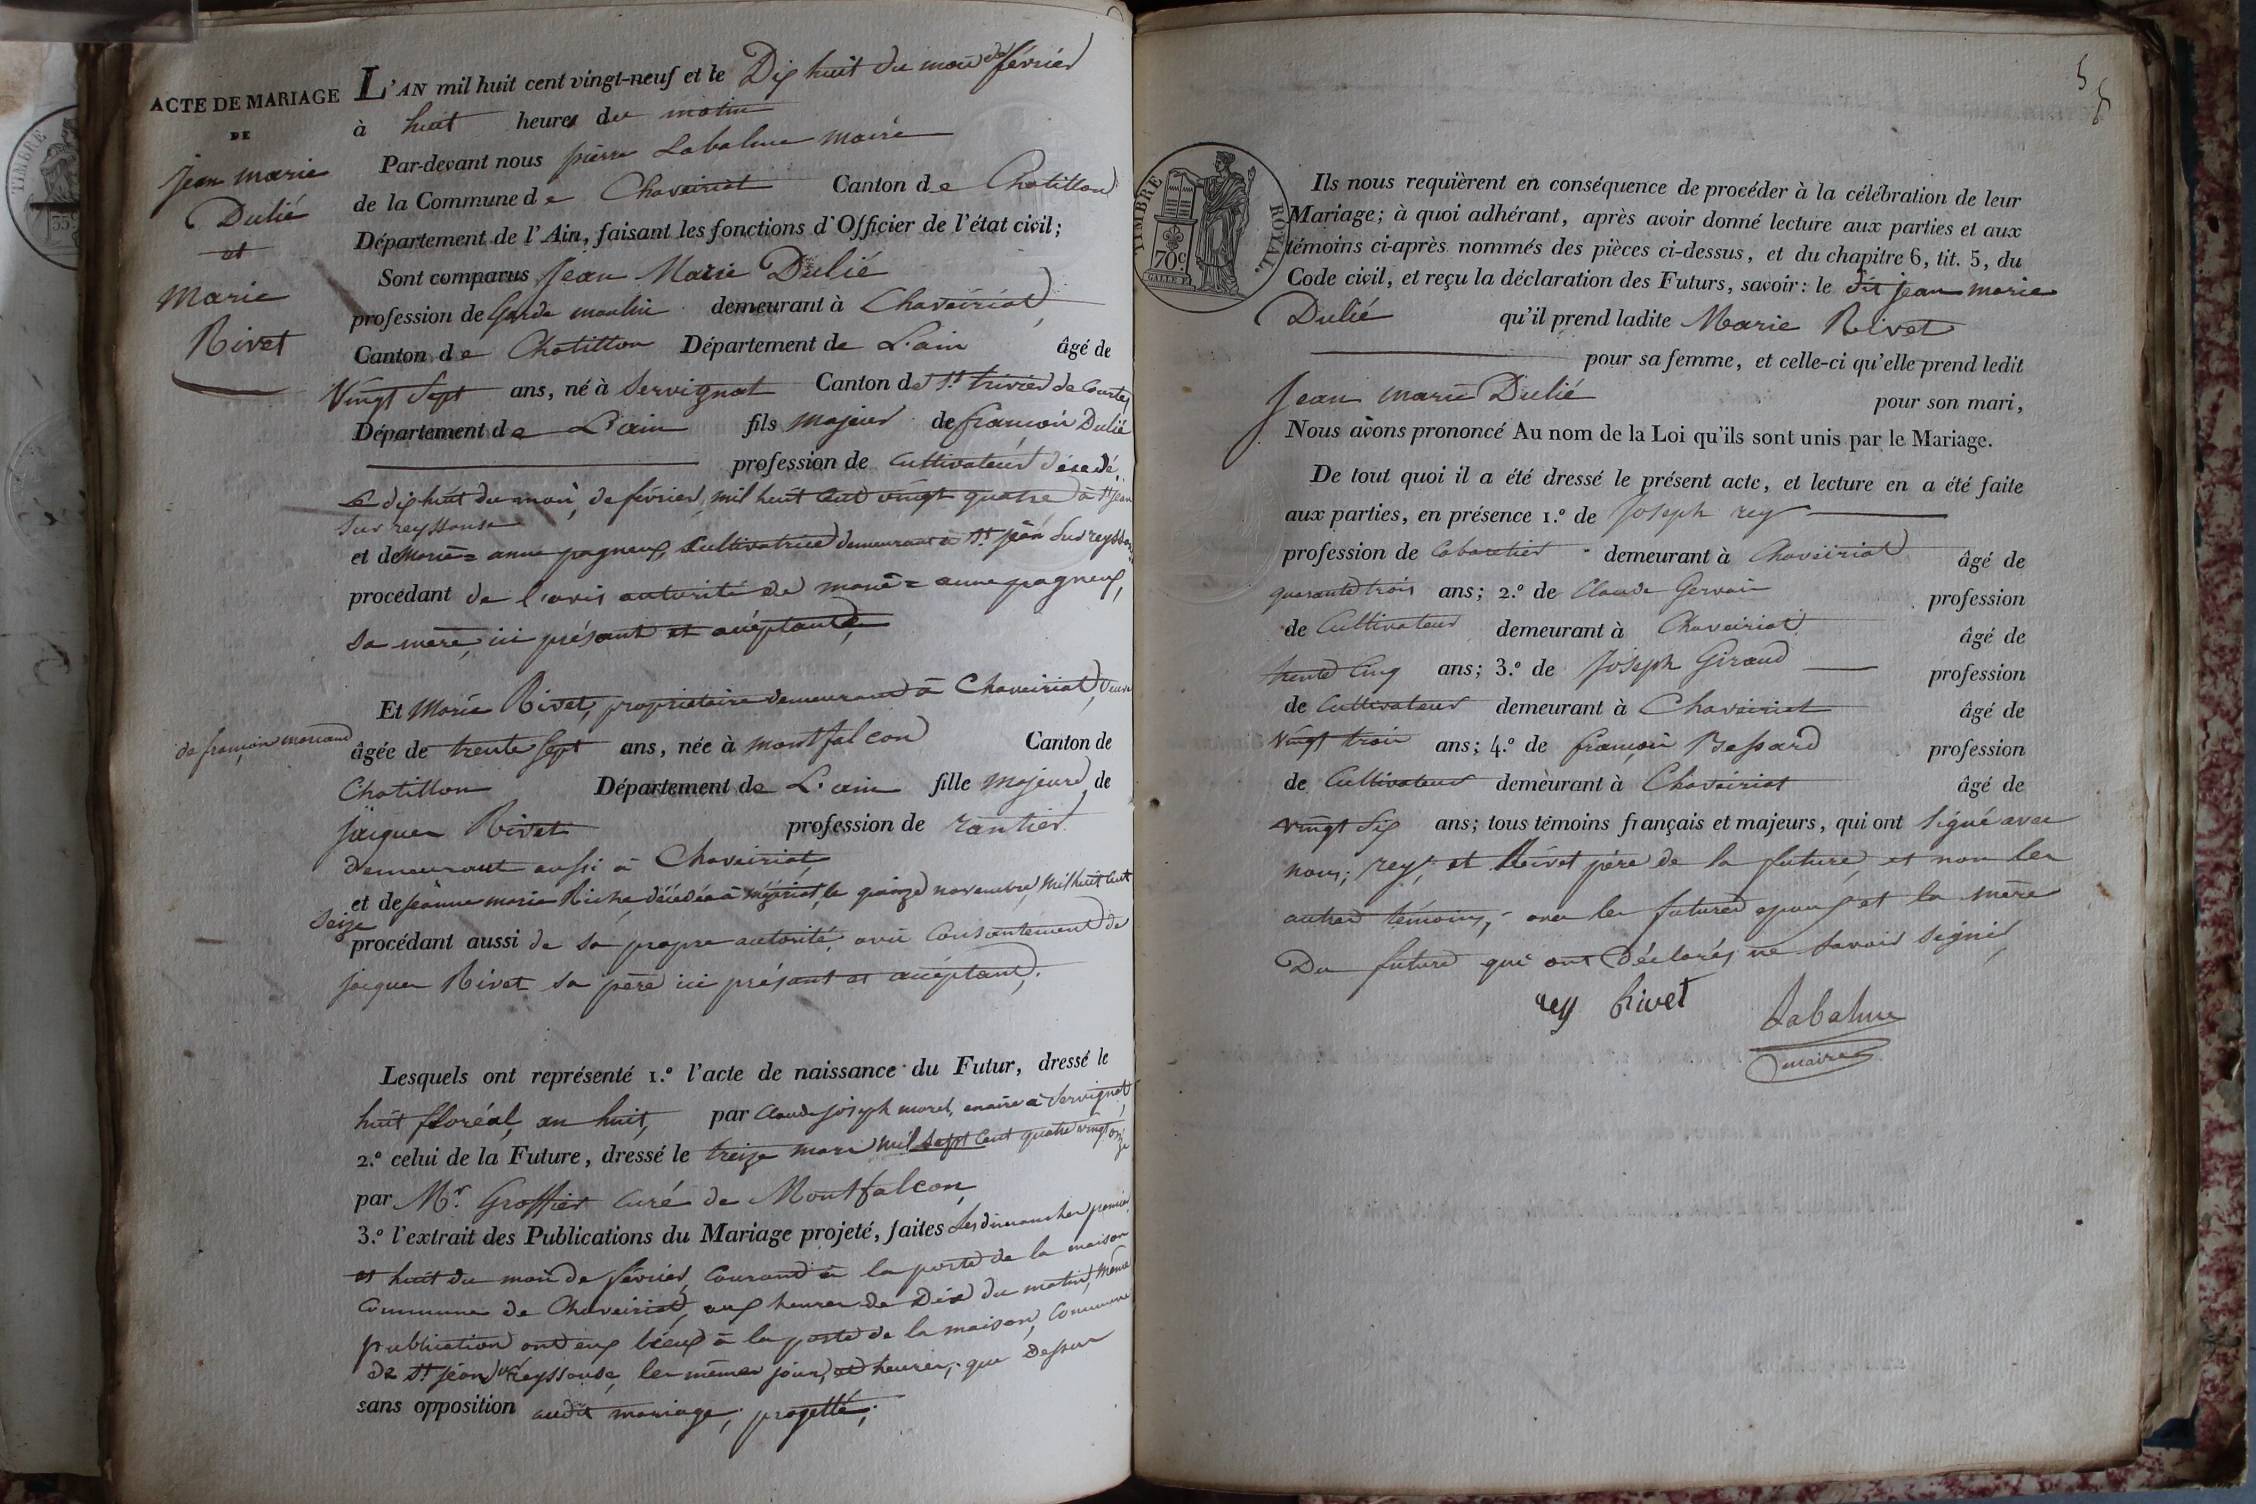 ACTE DE MARIAGE
DE
Jean marie
Dulié
et
Marie
Rivet
L'AN mil huit cent vingt-neuf et le Dix huit du mois de février
à huit heures du matin
Par-devant nous pierre Labalme maire
de la Commune de Chaveiriat Canton de Chatillon
Département de l'Ain, faisant les fonctions d'Officier de l'état civil;
Sont comparus Jean Marie Dulié
profession de Garde moulin demeurant à Chaveiriat,
Canton de Chatillon Département de L'ain âgé de
Vingt Sept ans, né à Servignat Canton de St. trivier de Courtes
Département de L'ain fils majeur de françois Dulié
profession de Cultivateur décédé
Le dix huit du mois, de février, mil huit Cent vingt quatre à St jean
Sur reyssouse
et de Marie= anne pagneux, Cultivatrice demeurant à St. jean Sur reyssouse
procédant de l'avis autorité de marie= anne pagneux,
sa mere, ici présant et acéptant,
Et Marie Rivet, propriétaire demeurant à Chaveiriat, veuve
de françois morand
âgée de trente Sept ans, née à montfalcon Canton de
Chatillon Département de L'ain fille majeure de
jacques Rivet profession de rantier
demeurant aussi à Chaveiriat,
et de jeanne marie Riche décédée à mézériat, le quinze novembre, Mil huit Cent
Seize
procédant aussi de sa propre autorité, avis Consantement de
jacques Rivet sa père ici présant et acéptant,
Lesquels ont représenté 1.º l'acte de naissance du Futur, dressé le
huit floréal, an huit, par Claude joseph morel, maire à Servignat,
2.º celui de la Future, dressé le treize mars mil Sept Cent quatre vingt onze
par Mr. Groffier Curé de Montfalcon
3.º l'extrait des Publications du Mariage projeté, faites Les dimanches premier
et huit du mois de février, Courant à la porte de la maison
Commune de Chaveiriat, aux heures de Dix du matin, même
publication ont eux lieux à la porte de la maison, Commune
de St jean Sur Reyssouse, les mêmes jours, et heures, que Dessus
sans opposition audit mariage, progetté,
5
TIMBRE ROYAL.
70c
Ils nous requièrent en conséquence de procéder à la célébration de leur
Mariage; à quoi adhérant, après avoir donné lecture aux parties et aux
témoins ci-après nommés des pièces ci-dessus, et du chapitre 6, tit. 5, du
Code civil, et reçu la déclaration des Futurs, savoir: le dit jean marie
Dulié qu'il prend ladite Marie Rivet
pour sa femme, et celle-ci qu'elle prend ledit
Jean marie Dulié pour son mari,
Nous avons prononcé Au nom de la Loi qu'ils sont unis par le Mariage.
De tout quoi il a été dressé le présent acte, et lecture en a été faite
aux parties, en présence 1.º de Joseph rey
profession de Cabaretier demeurant à Chaveiriat âgé de
quarante trois ans; 2.º de Claude Gervais profession
de Cultivateur demeurant à Chaveiriat âgé de
trente Cinq ans; 3.º de Joseph Giraud profession
de Cultivateur demeurant à Chaveiriat âgé de
Vingt trois ans; 4.º de françois Bessard profession
de Cultivateur demeurant à Chaveiriat âgé de
vingt Six ans; tous témoins français et majeurs, qui ont Signé avec
nous, rey, et Rivet père de la future, et non les
autres témoins, avec les futures epoux et la mère
Du future qui ont Déclarés ne Savoir Signé,
rey Rivet Labalme
maire